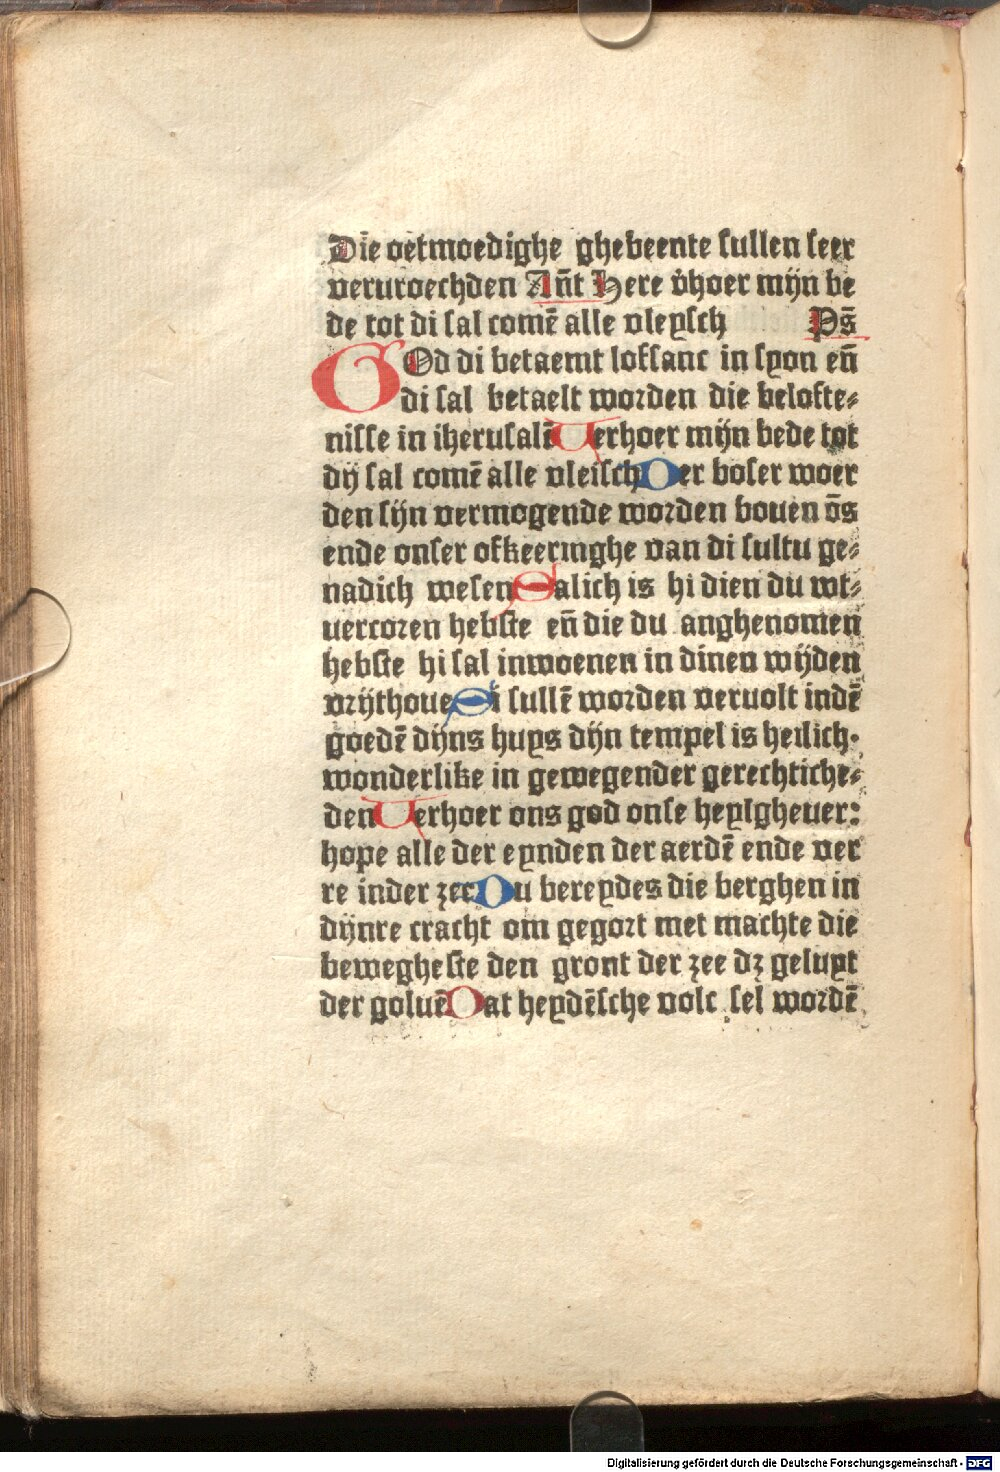 Die oetmoedighe ghebeente sullen seer
veruroechden An̄t Here v̄hoer mijn be
de tot di sal comē alle vleysch Ps̄
GOd di betaemt lofsanc in syon en̄
di sal betaelt worden die belofte⸗
nisse in iherusalē Uerhoer mijn bede tot
dij sal comē alle vleisch Der boser woer
den sijn vermogende worden bouen ōs
ende onser ofkeeringhe van di sultu ge⸗
nadich wesen Salich is hi dien du wt⸗
uercoren hebste en̄ die du anghenomen
hebste hi sal inwoenen in dinen wijden
vrijthoue Si sullē worden veruolt indē
goedē dijns huys dijn tempel is heilich·
wonderlike in gewegender gerechtiche⸗
den Uerhoer ons god onse heylgheuer:
hope alle der eynden der aerdē ende ver
re inder zee Du bereydes die berghen in
dijnre cracht om gegort met machte die
bewegheste den gront der zee dz geluyt
der goluē Dat heydēsche volc sel wordē
Digitalisierung gefördert durch die Deutsche Forschungsgemeinschaft - DFG